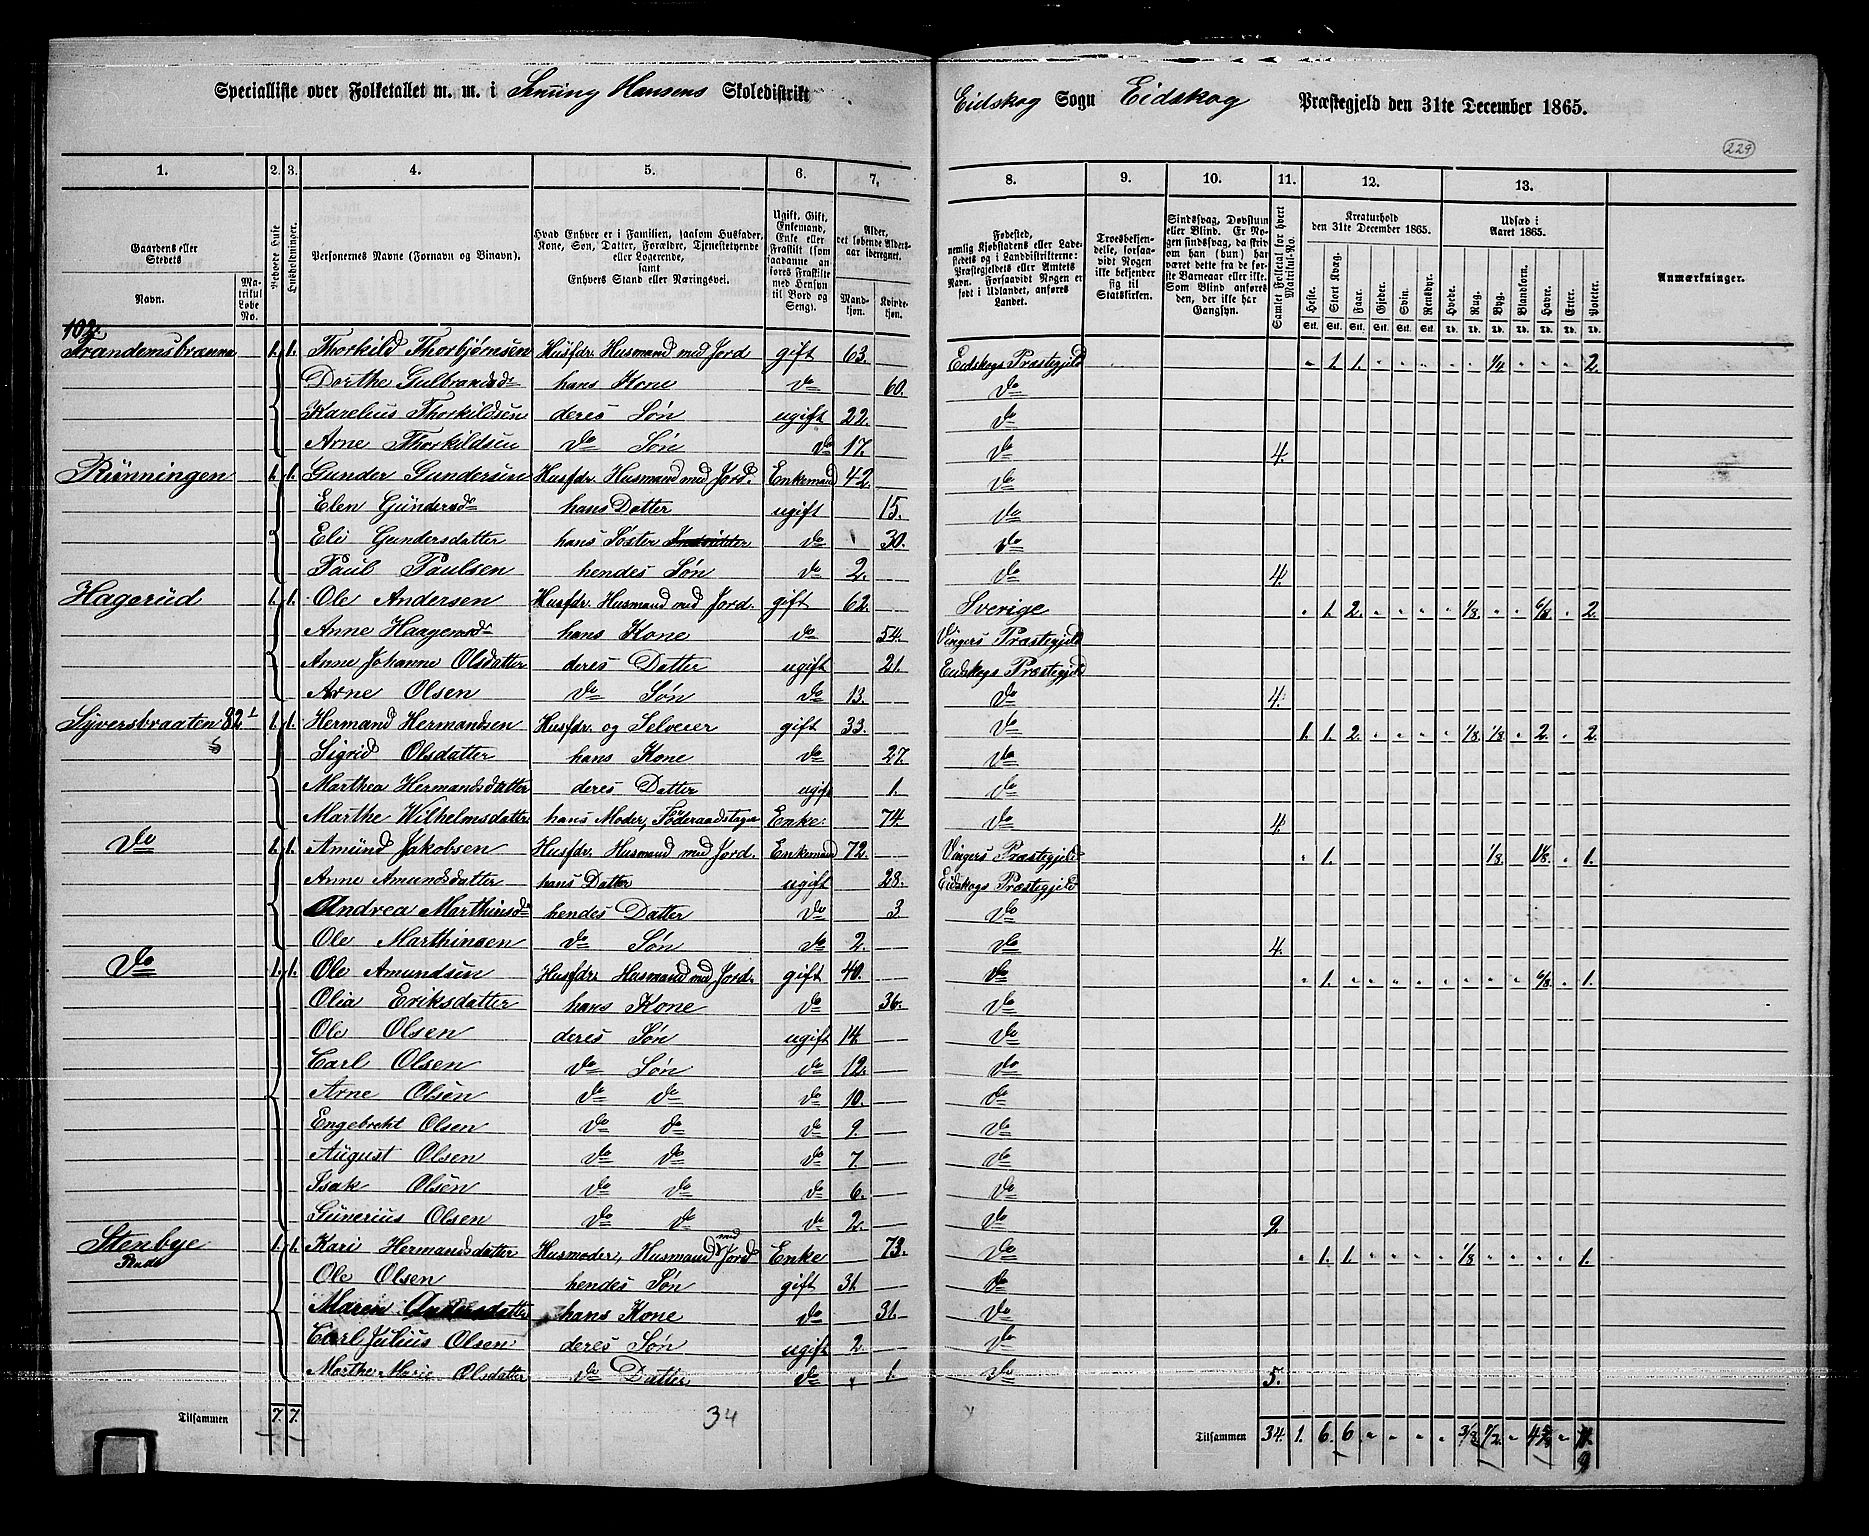 Specialliste over Folketallet m. m. i Hansens Skoledistrikt
Eidskog Sogn Eidskog Præstegjeld den 31te December 1865.
229
1. 2. 3. 4. 5. 6. 7.
8. 9. 10. 11. 12. 13.
Gaardens eller Stedets
Navn.
Matrikul Løbe No.
Beboede Huse
Husholdninger.
Personernes Navne (Fornavn og Binavn).
Hvad Enhver er i Familien, saasom Husfader, Kone, Søn, Datter, Forældre, Tjenestetyende eller Logerende, samt Enhvers Stand eller Næringsvei.
Ugift, Gift, Enkemand, Enke eller Fraskilt (som saadanne anføres Fraskilte med Hensyn til Bord og Seng).
Alder, det løbende Aldersaar iberegnet.
Mandkjøn.
Kvindekjøn.
Fødested, nemlig Kjøbstadens eller Ladestedets og i Landdistrikterne: Præstegjeldets eller Amtets Navn. Forsaavidt Nogen er født i Udlandet, anføres Landet.
Troesbekjendelse, forsaavidt Nogen ikke bekjender sig til Statskirken.
Sindssvag, Døvstum eller Blind. Er Nogen sindssvag, da skrives om han (hun) har været dette fra de første Barneaar eller ikke. Som Blind anføres den, der ikke har Gangsyn.
Samlet Folketal for hvert Matrikul-No.
Kreaturhold den 31te December 1865.
Udsæd i Aaret 1865.
Anmærkninger.
Heste. Stort Kvæg. Faar. Gjeder. Svin. Rensdyr. Hvede. Rug. Byg. Blandkorn. Havre. Erter. Poteter.
102.
1. 1. Thorkild Thorbjørnsen Husfdr. Husmand med Jord gift 63. Eidskogs Præstegjeld " 1. 1. " " " " " 1/4 " " " 2.
Dorthe Gulbrandsd hans Kone do 60. do
Karelius Thorkildsen deres Søn ugift 22. do
Arne Thorkildsen do Søn do 17. do 4.
Rünningen 1. 1. Gunder Gundersen Husfdr. Husmand med Jord. Enkemand 42. do
Elen Gundersd hans Datter ugift 15. do
Eli Gundersdatter hans Søster do 30. do
Paul Paulsen hendes Søn do 2. do 4.
Hagerüd 1. 1. Ole Andersen Husfdr. Husmand med Jord. gift 62. Sverige " 1. 2. " " " " 1/8 " " 6/8 " 2.
Anne Haagensd hans Kone do 54. Vingers Præstegjeld
Anne Johanne Olsdatter deres Datter ugift 21. Eidskogs Præstegjeld
Arne Olsen do Søn do 13. do 4.
Syversbraaten 82 1. 1. Hermand Hermandsen Husfdr. og Selveier gift 33. do 1. 1. 2. " " " " 1/8 1/8 " 2. " 2.
Sigrid Olsdatter hans Kone do 27. do
Marthea Hermandsdatter deres Datter ugift 1. do
Marthe Wilhelmsdatter hans Moder, Føderaadstager Enke. 74. do 4.
do 1. 1. Amünd Jakobsen Husfdr. Husmand med Jord. Enkemand 72. Vingers Præstegjeld " 1. 1/8 " 1/8 " 1.
Anne Amundsdatter hans Datter ugift 28. Eidskogs Præstegjeld
Andrea Marthinsd hendes Datter do 3 do
Ole Marthinsen do Søn do 2. do 4.
do 1. 1. Ole Amundsen Husfdr. Husmand med Jord. gift 40. do " 1. " " " " " " " " 6/8 " 1.
Olia Eriksdatter hans Kone do 36. do
Ole Olsen deres Søn ugift 14 do
Carl Olsen do Søn do 12. do
Arne Olsen do do do 10. do
Engebreht Olsen do do do 9. do
August Olsen do do do 7. do
Isak Olsen do do do 6. do
Günerius Olsen do do do 2. do 9.
Stenbye 1. 1. Kari Hermandsdatter Husmoder, Husmand med Jord Enke 73. do " 1. 1. " " " " 1/8 " " " " 1.
Ole Olsen hendes Søn gift 31. do
Maren Andersdatter hans Kone do 31. do
Carl Julius Olsen deres Søn ugift 2. do
Marthe Marie Olsdatter do Datter do 1. do 5.
Tilsammen 7. 7. 34
Tilsammen 34. 1. 6. 6. " " " " 3/8 1/2 "
9